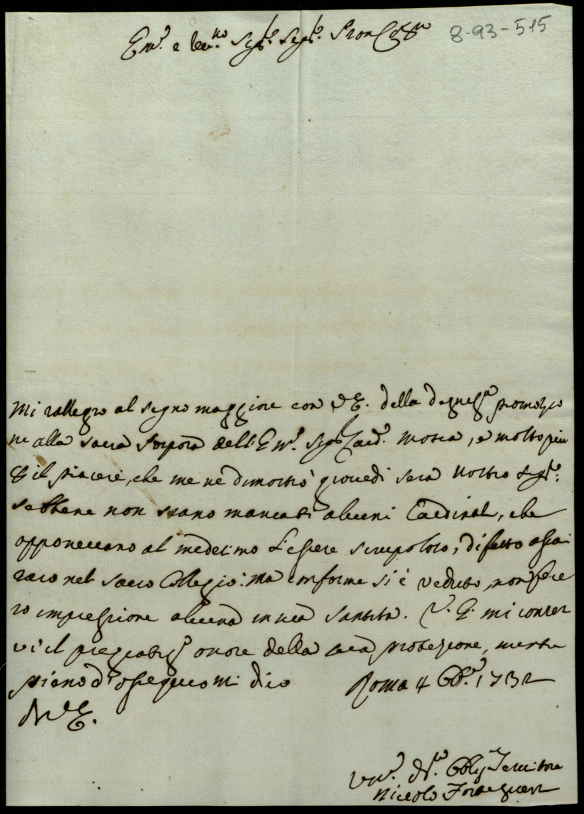 Em.º e Rev.mo Sig.r Sig.r Pron Col.mo
8-93-515
Mi rallegro al segno maggiore con V.E. della degniss.a promozio
ne alla sacra Porpora dell'Em.º Sig.r Card. Mosca, e molto piu
p il piacere, che me ne dimostrò giovedi sera Nostro Sig.re
sebbene non siano mancati alcuni Cardinali, che
opponevano al medesimo l'essere scrupoloso, difetto assai
raro nel sacro Collegio: ma conforme si è veduto, non fece
ro impressione alcuna in sua Santità. V.E. mi conser
vi il pregiatiss.o onore della sua protezione, mentre
pieno d'ossequio mi dico Roma 4 Ob.e 1732
D V.E.
Um.o D.mo Obbl.mo Servitore
Niccolo Forteguerri